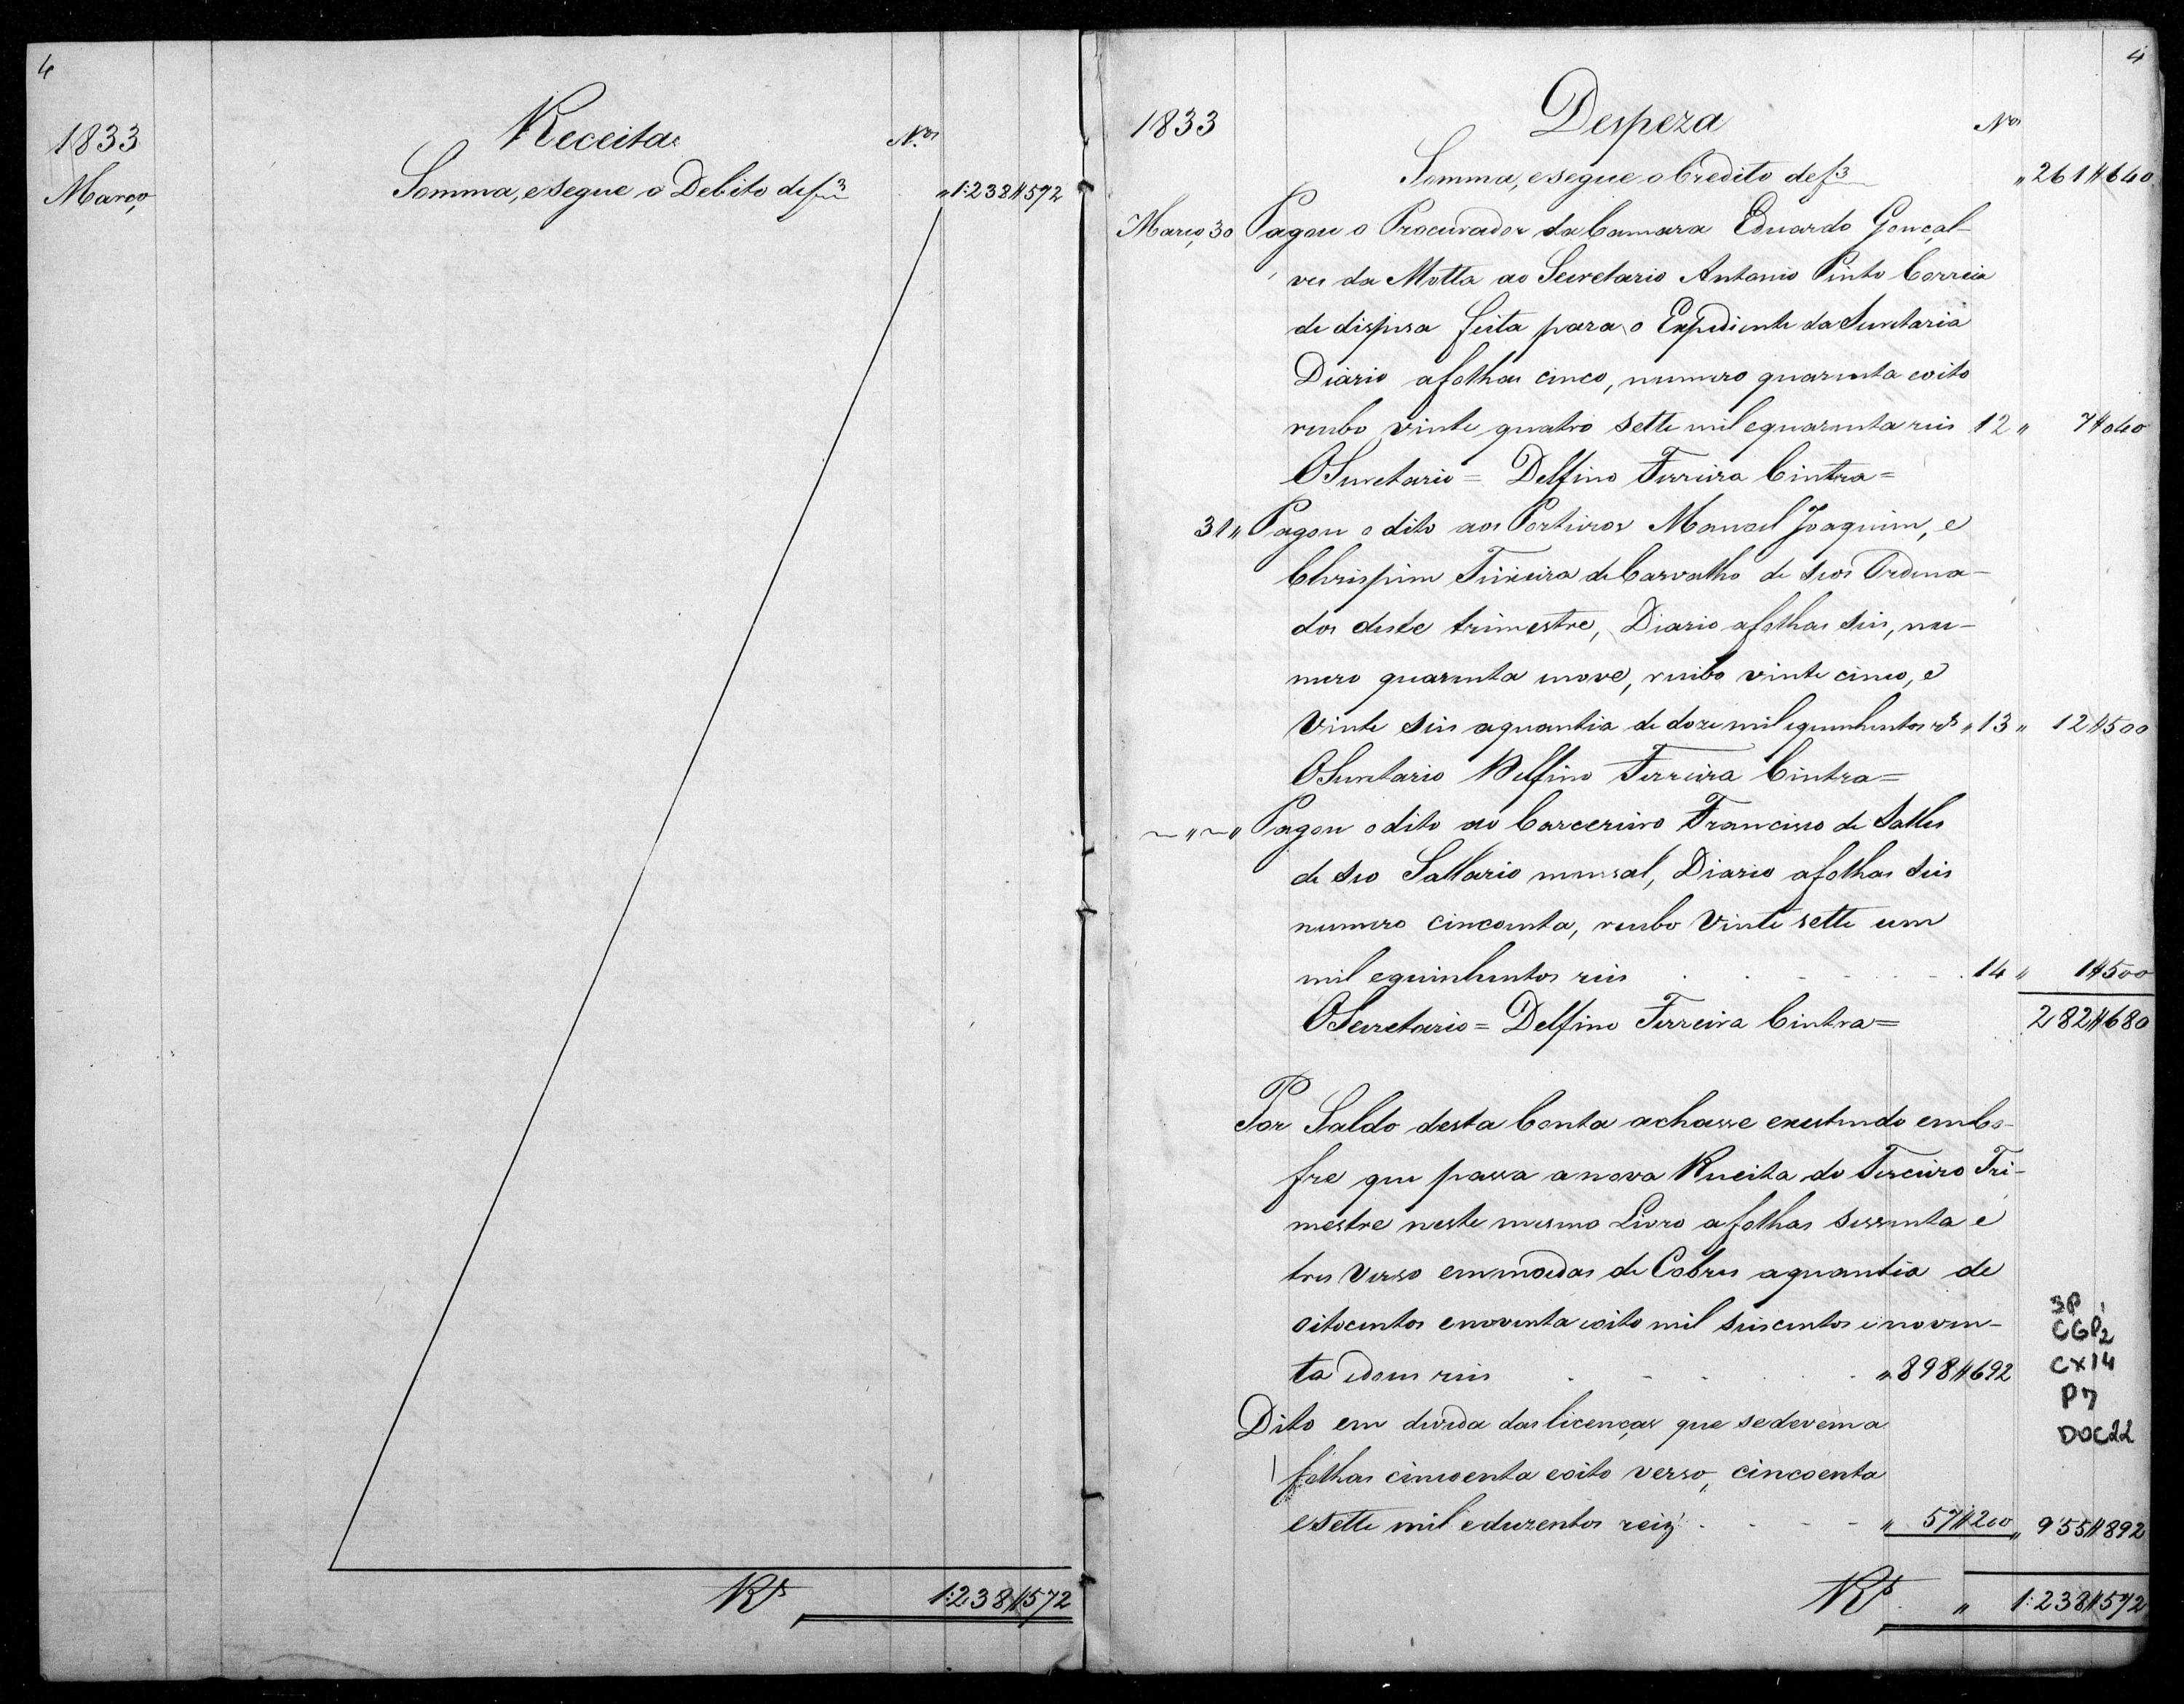 4
1833
Receita
N.os
Março
Somma, e segue o Debito de f 3
" 1:238$572
Rs
1:238$572
4
1833
Despeza
Nos
Somma, e segue o Credito de f 3
" 261$640
Março 30 Pagou o Procurador da Camara Eduardo Gonçal-
ves da Motta ao Secretario Antonio Pinto Correia
de dispesa feita para o Expediente da Secretaria
Diario a folhas cinco, numero quarenta e oito
recibo vinte quatro sette mil e quarenta reis 12 " 7$040
O Secretario = Delfino Ferreira Cintra =
31 " Pagou o dito aos Porteiros Manoel Joaquim, e
Chrispim Teixeira de Carvalho de seos Ordena-
dos deste trimestre, Diario a folhas seis, nu-
mero quarenta e nove, recibo vinte cinco, e
vinte seis a quantia de doze mil e quinhentos rs " 13 " 12$500
O Secretario Delfino Ferreira Cintra =
~ " ~ " Pagou o dito ao Carcereiro Francisco de Salles
de seo Sallario mensal, Diario a folhas seis
numero cincoenta, recibo vinte sette um
mil e quinhentos reis . . - - - - . 14 " 1$500
O Secretario = Delfino Ferreira Cintra =
282$680
Por Saldo desta Conta achasse existindo em Co-
fre que passa a nova Receita do Terceiro Tri-
mestre neste mesmo Livro a folhas sessenta e
tres verso em moedas de Cobres a quantia de
oitocentos e noventa e oito mil seiscentos e noven-
ta e dous reis . - - . . " 898$692
Dito em divida das licenças que se devem a
folhas cincoenta e oito verso, cincoenta
e sette mil e duzentos reis . - - - " 57$200 " 955$892
SP
CGP2
CX14
P7
DOC22
Rs " 1:238$572